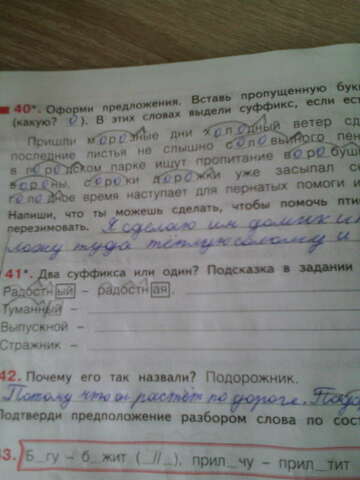 40*. Оформи предложения. Вставь пропущенную бук
(какую? о). В этих словах выдели суффикс, если ест
Пришли морозные дни холодный ветер сд
последние листья не слышно соловьиного пени
в городском парке ищут пропитание воробуш
вороны, сороки дорожки уже засыпал с
голодное время наступает для пернатых помоги и
Напиши, что ты можешь сделать, чтобы помочь пти
перезимовать. Я сделаю им домик и
ложу туда тёплую солому и
41*. Два суффикса или один? Подсказка в задании
Радостный – радостная.
Туманный –
Выпускной –
Стражник –
42. Почему его так назвали? Подорожник.
Потому что он растёт по дороге.
Подтверди предположение разбором слова по сост
3. Б_гу – б_жит (_//_), прил_чу – прил_тит